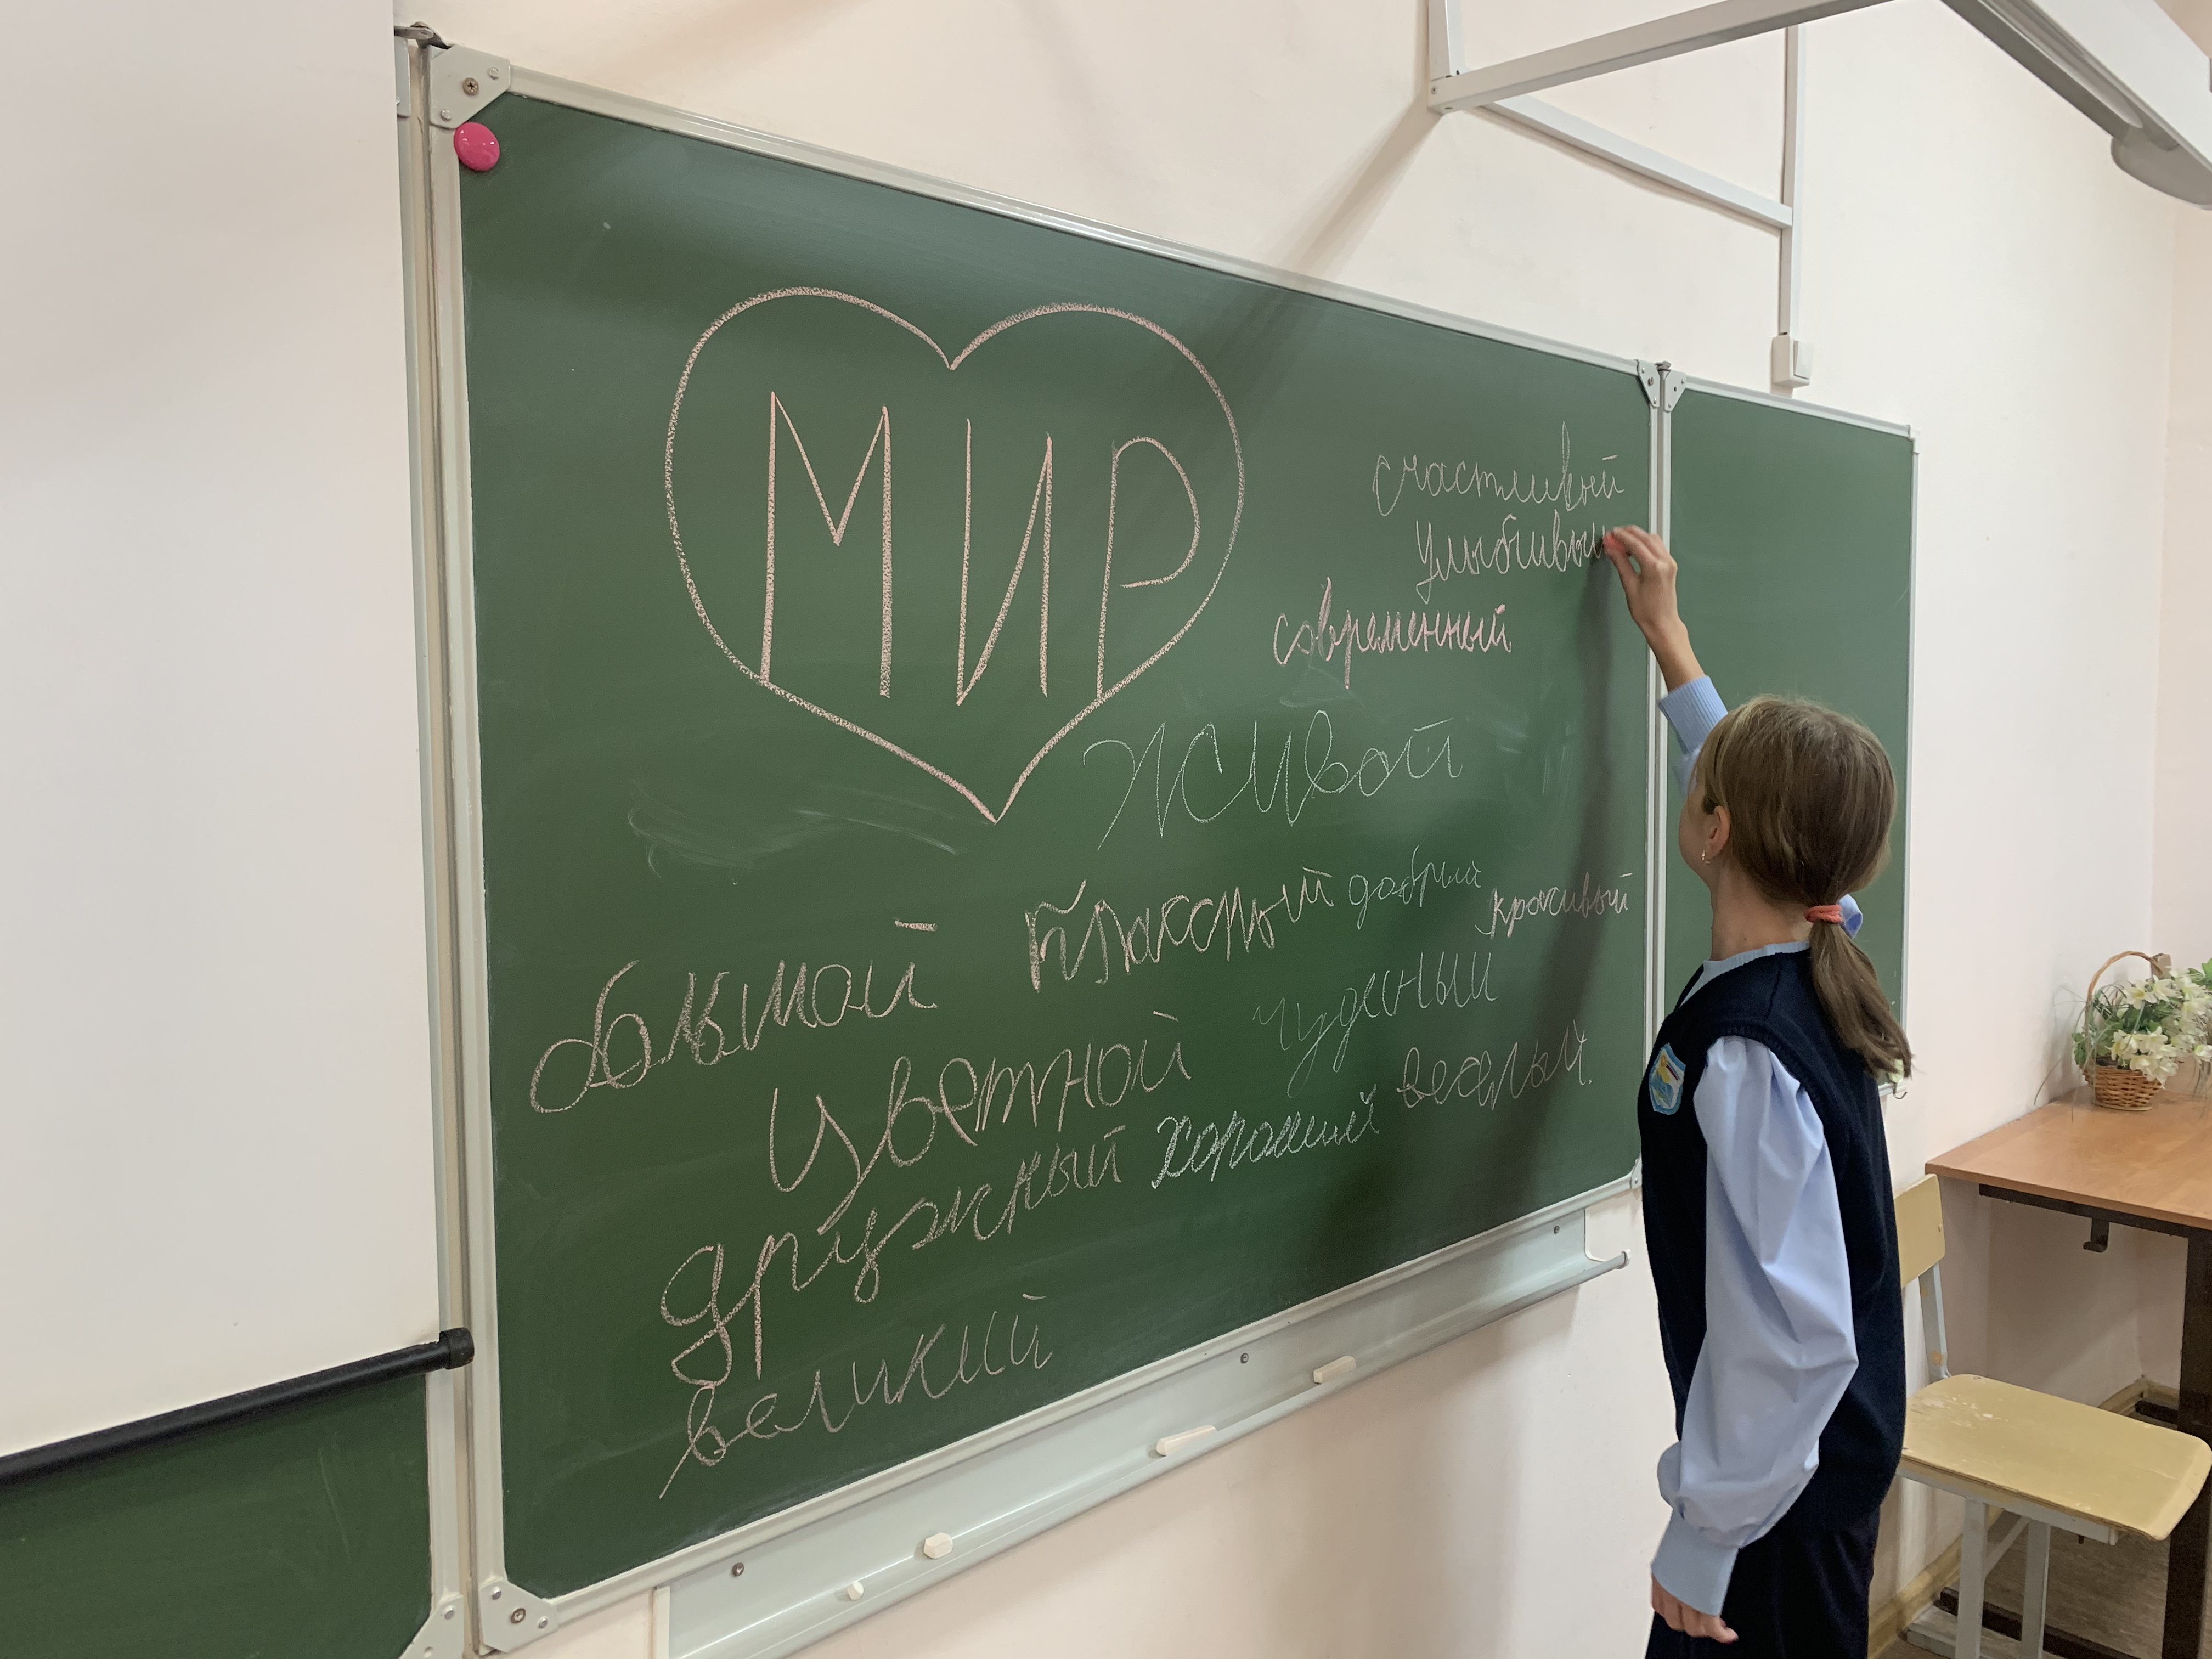 МИР
счастливый
улыбчивый
современный
живой
большой классный добрый красивый
цветной чудесный
дружный хороший весёлый
великий